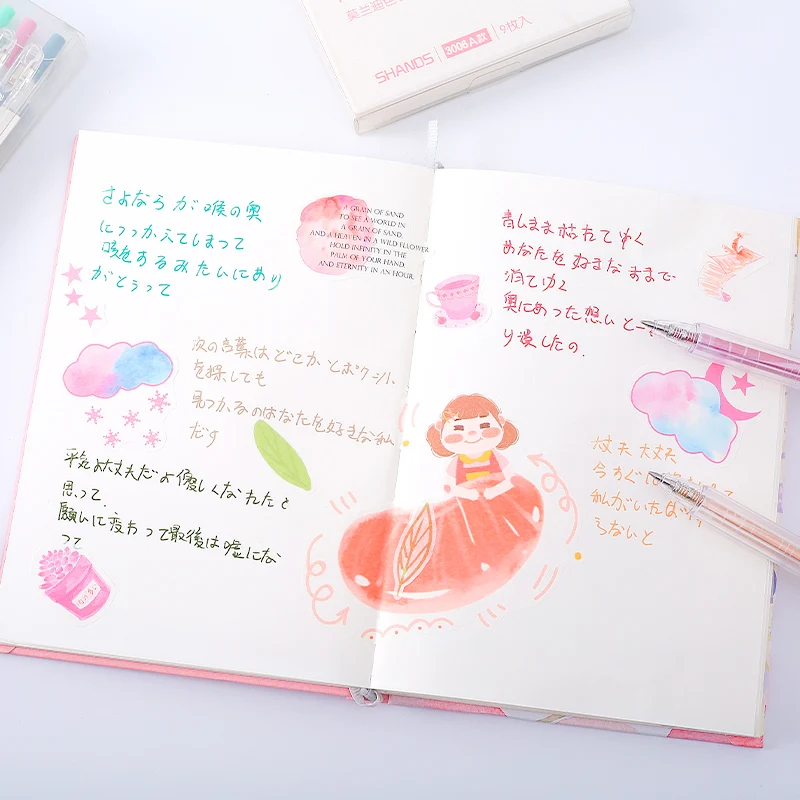 莫兰迪色
SHANDS | 3006A款 | 9枚入
さよならが喉の奥
につっかえてしまって
咳をするみたいにあり
がとうって
A GRAIN OF SAND
TO SEE A WORLD IN
A GRAIN OF SAND,
AND A HEAVEN IN A WILD FLOWER
HOLD INFINITY IN THE
PALM OF YOUR HAND,
AND ETERNITY IN AN HOUR.
次の言葉はどこかとポケット
を探しても
見つかるのはなたを好きな私
だけ
平気よ大丈夫だよ優しくなれたと
思って
願いに変わって最後は嘘にな
って
青しまま枯れてゆく
あなたを好きなままで
消てゆく
奥にあった想いと
り潰したの.
大丈夫 大丈夫
今すぐに
私がいたば
らないと